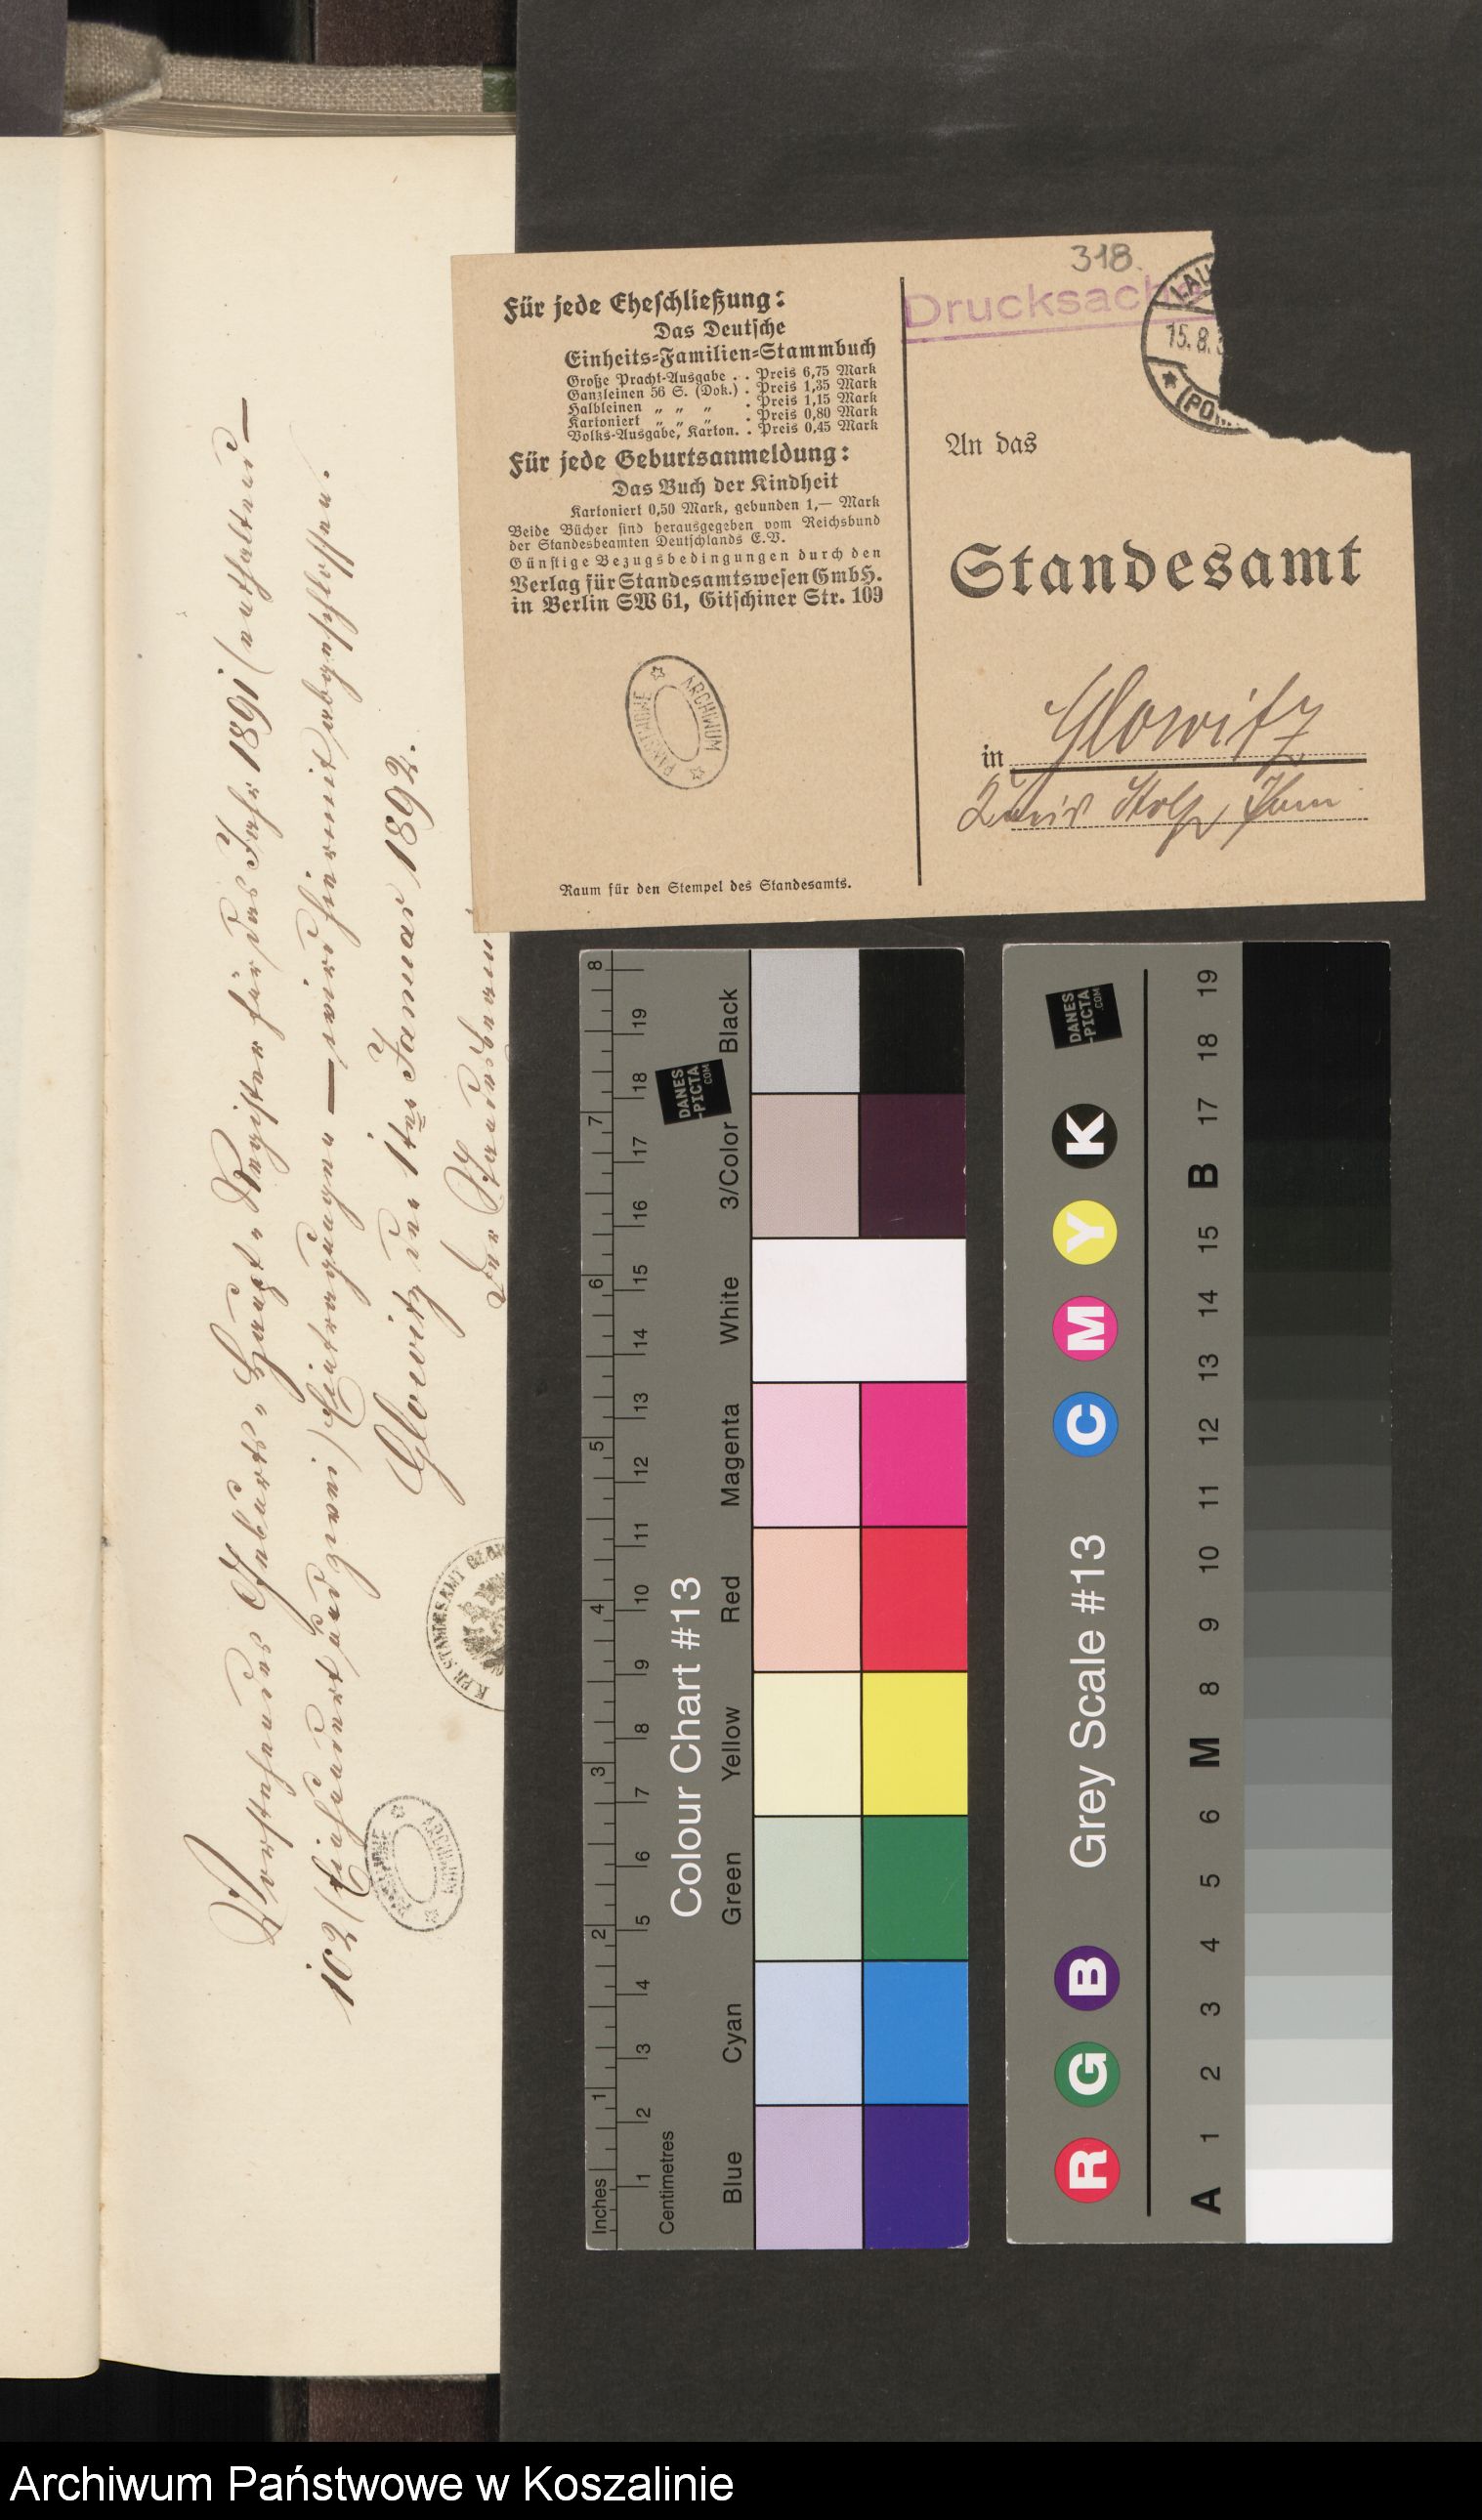 Vorstehendes Geburts-Haupt-Register für das Jahr 1891 (enthaltend —
102 (Einhundert und zwei) Eintragungen — wird hiermit abgeschlossen.
Glowitz den 1ten Januar 1892.
Der Standesbeamte
K. PR. STANDESAMT GLOW
ARCHIWUM PAŃSTWOWE
318.
Drucksache
LAU
15.8.3
(POM
Für jede Eheschließung:
Das Deutsche
Einheits-Familien-Stammbuch
Große Pracht-Ausgabe . . Preis 6,75 Mark
Ganzleinen 56 S. (Dok.) . Preis 1,35 Mark
Halbleinen „ „ „ . Preis 1,15 Mark
Kartoniert „ „ „ . Preis 0,80 Mark
Volks-Ausgabe, Karton. . Preis 0,45 Mark
Für jede Geburtsanmeldung:
Das Buch der Kindheit
Kartoniert 0,50 Mark, gebunden 1,— Mark
Beide Bücher sind herausgegeben vom Reichsbund
der Standesbeamten Deutschlands E.V.
Günstige Bezugsbedingungen durch den
Verlag für Standesamtswesen GmbH.
in Berlin SW 61, Gitschiner Str. 109
ARCHIWUM PAŃSTWOWE
Raum für den Stempel des Standesamts.
An das
Standesamt
in Glowitz
Kreis Stolp Pom
Colour Chart #13
DANES
-PICTA
.COM
Inches 1 2 3 4 5 6 7 8
Centimetres 1 2 3 4 5 6 7 8 9 10 11 12 13 14 15 16 17 18 19
Blue Cyan Green Yellow Red Magenta White 3/Color Black
Grey Scale #13
DANES
-PICTA
.COM
R G B C M Y K
A 1 2 3 4 5 6 M 8 9 10 11 12 13 14 15 B 17 18 19
Archiwum Państwowe w Koszalinie